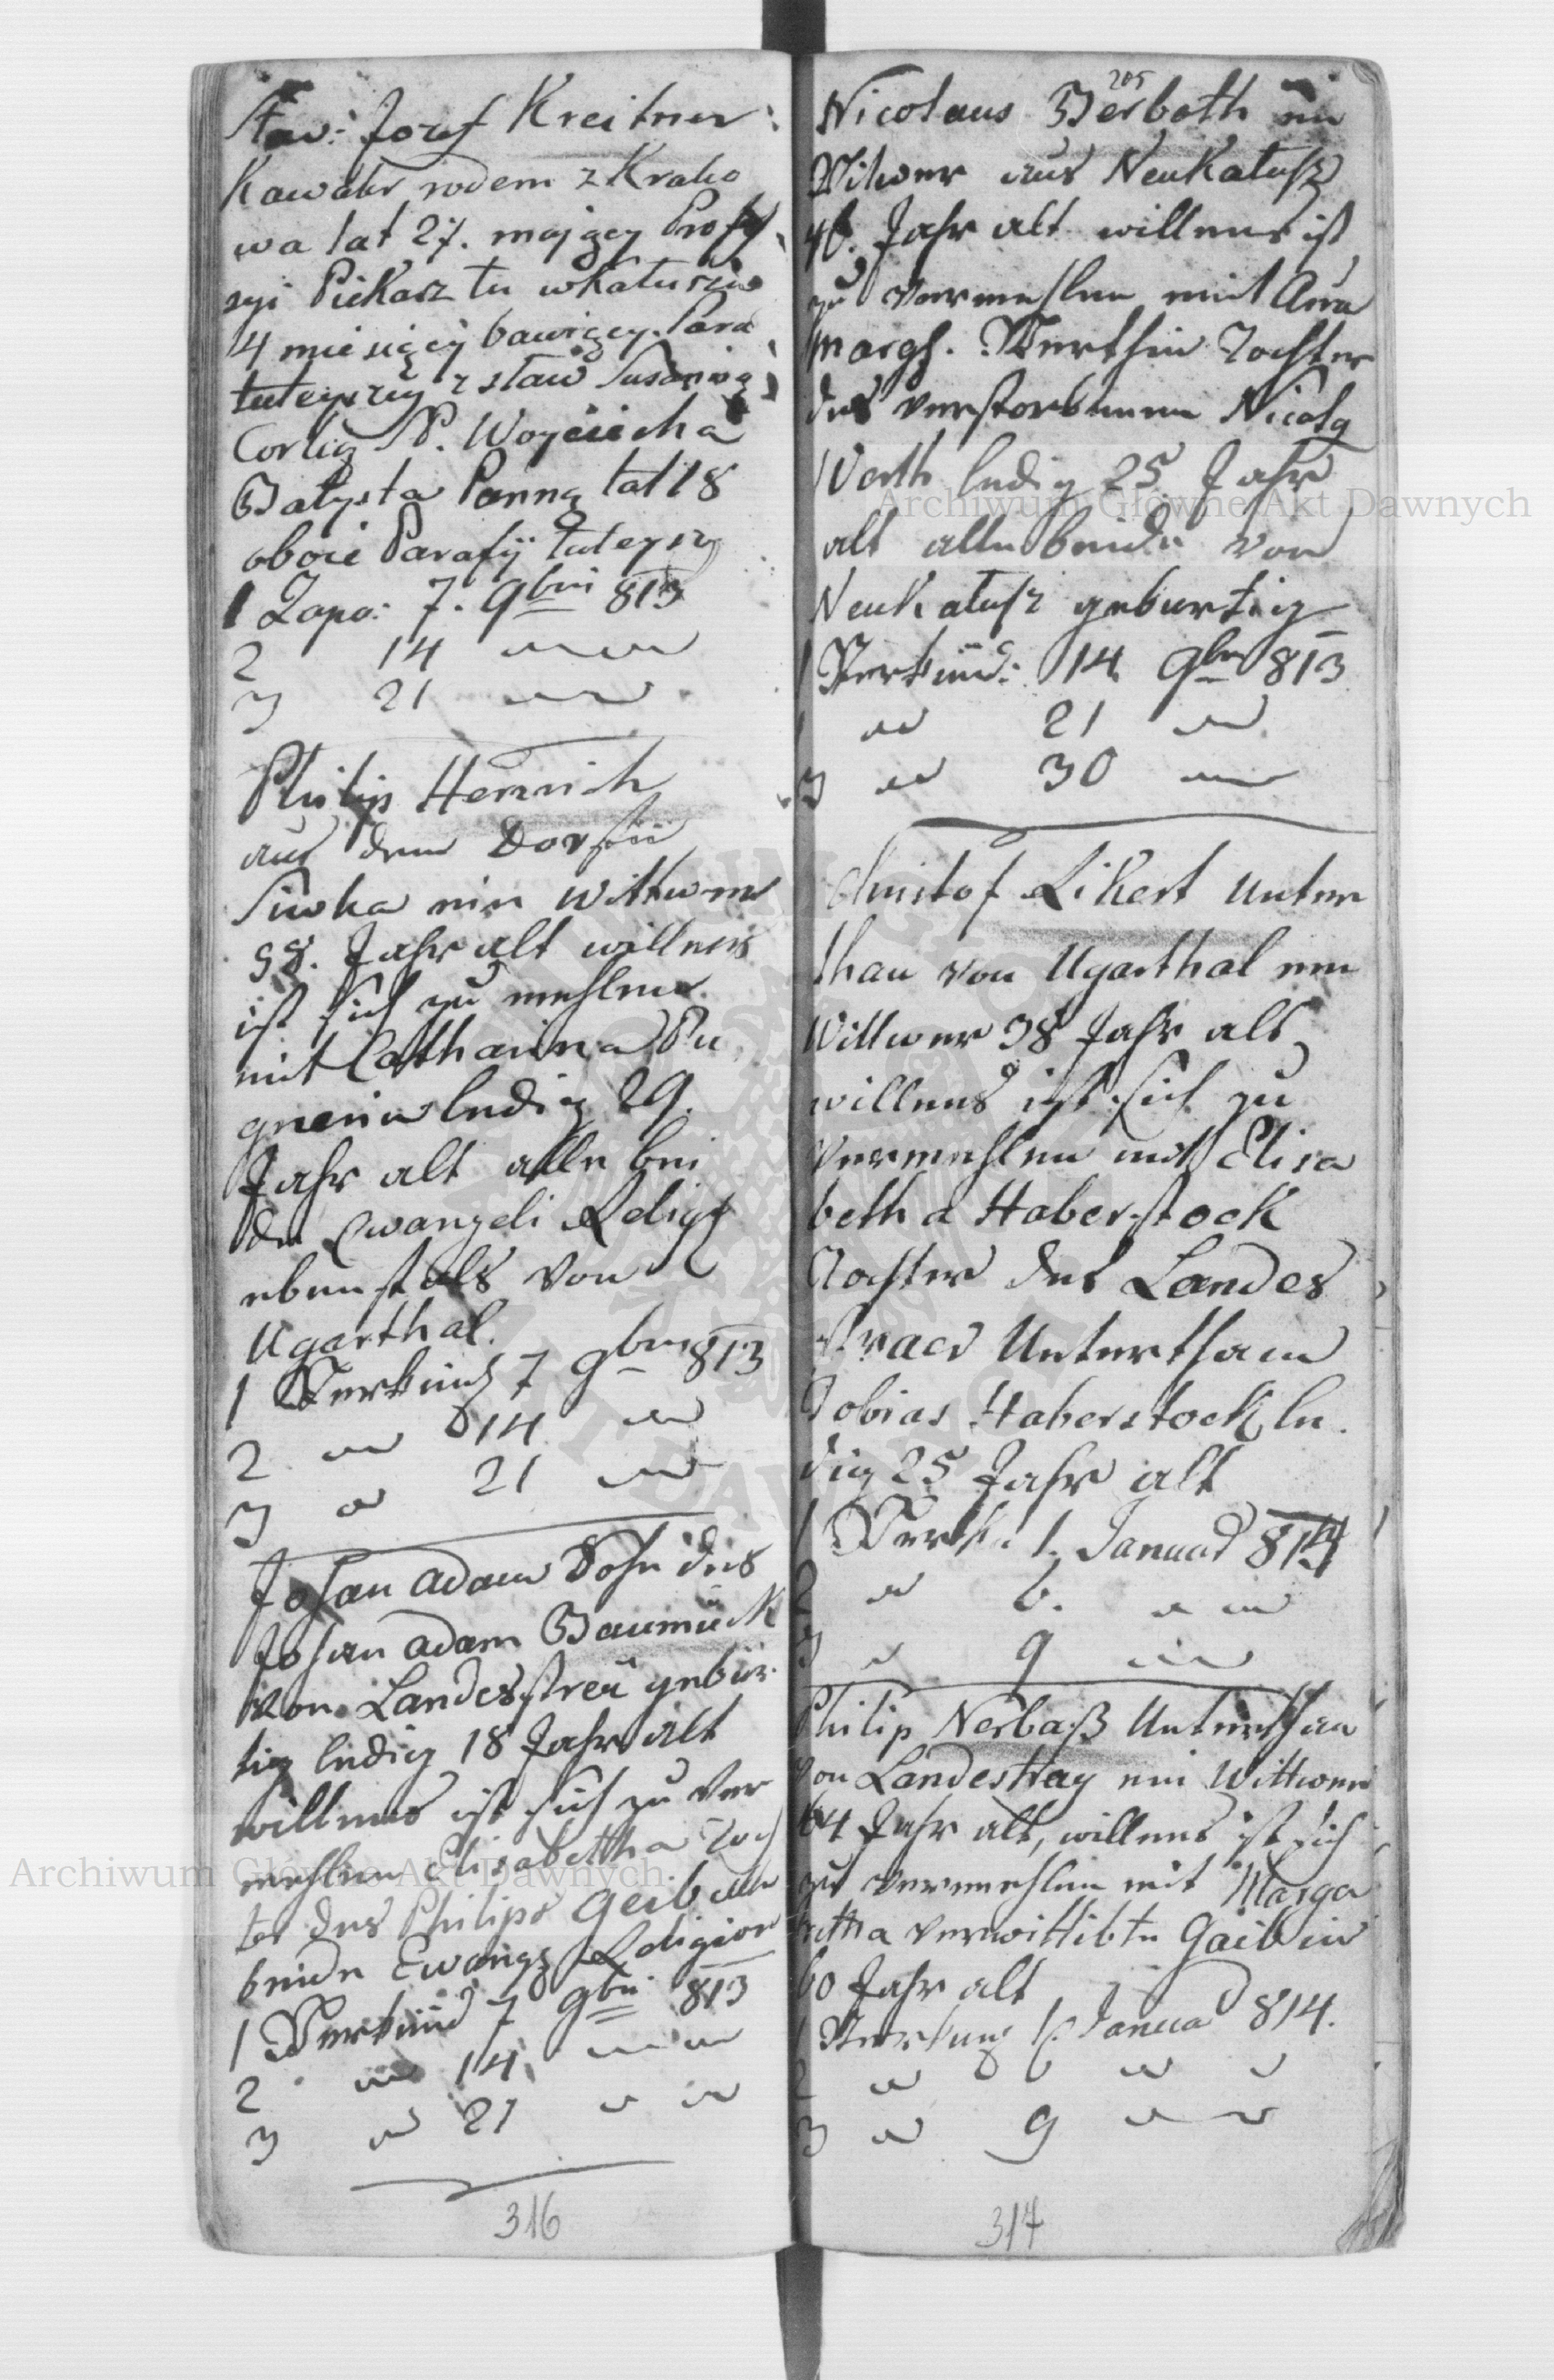 Staw: Jozef Kreitner
Kawaler rodem z Krako
wa lat 27. maiący Profe
syi Piekarz tu w Kałuszu
4 miesięcy bawiący. Para
tuteyszy z staw Susanną
Corką S.P. Woyciecha
Bałysta Panną lat 18
oboie Parafÿ tuteyszy
1 Zapo: 7. 9bri 813
2 14
3 21
Philip Henrich
aus dem Dorf
Siwka ein Wittwer
58. Jahr alt willens
ist sich zu mehlen
mit Catharina Pu
gnerin ledig 29.
Jahr alt alle bei
de Ewangeli Relig
ebenfals von
Ugarthal.
1 Verkünd 7 9bris 813
2 14
3 21
Johan Adam Sohn des
Johan Adam Baumück
von Landesstreü gebür
tig ledig 18 Jahr alt
willens ist sich zu ver
mehlen Elisabettha Toch
ter des Philips Geib alle
beide Ewang Religion
1 Verkünd 7 9bri 813
2 14
3 21
316
205
Nicolaus Berboth ein
Witwer aus NeuKalusz
46. Jahr alt willens ist
zu vermehlen mit Ana
Margh. Werthin Tochter
des verstorbenen Nicolg
Werth ledig 25 Jahr
alt alle beide von
NeuKalusz geburtig
1 Verkünd: 14 9br 813
21
3 30
Christof Likert Unter
than von Ugarthal ein
Wittwer 38 Jahr alt
willens ist sich zu
vermehlen mit Elisa
betha Haberstock
Tochter des Landes
Unterthan
Tobias Haberstock le
dig 25 Jahr alt
1 Verk: 1. Januar 814
2 6.
3 9
Philip Nerbaß Unterthan
von Landestray ein Wittwer
64 Jahr alt, willens ist sich
zu vermehlen mit Marga
retha verwittibte Gaibin
60 Jahr alt
1 Verkund 1. Janua 814.
2 6
3 9
317
Archiwum Główne Akt Dawnych
Archiwum Główne Akt Dawnych